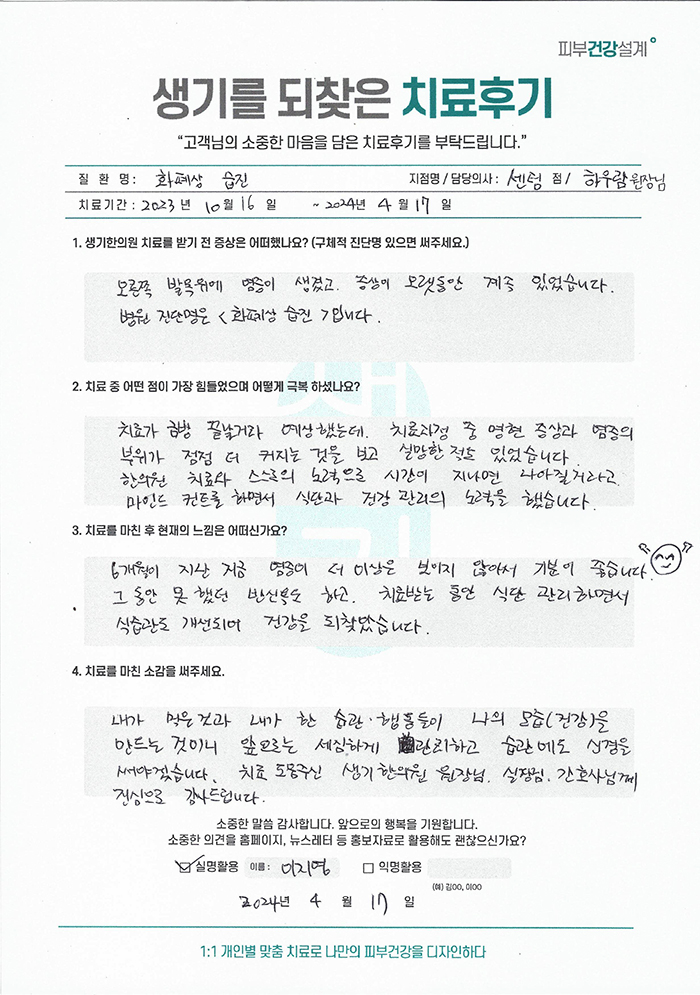 피부건강설계
생기를 되찾은 치료후기
“고객님의 소중한 마음을 담은 치료후기를 부탁드립니다.”
질 환 명 : 화폐상 습진 지점명 / 담당의사 : 센텀 점 / 하우람 원장님
치료기간 : 2023 년 10 월 16 일 ~ 2024 년 4 월 17 일
1. 생기한의원 치료를 받기 전 증상은 어떠했나요? (구체적 진단명 있으면 써주세요.)
오른쪽 발목위에 염증이 생겼고. 증상이 오랫동안 계속 있었습니다.
병원 진단명은 <화폐상 습진>입니다.
2. 치료 중 어떤 점이 가장 힘들었으며 어떻게 극복 하셨나요?
치료가 금방 끝날거라 예상했는데. 치료과정 중 명현 증상과 염증의
부위가 점점 더 커지는 것을 보고 실망한 적도 있었습니다.
한의원 치료와 스스로의 노력으로 시간이 지나면 나아질거라고.
마인드 컨트롤 하면서 식단과 건강 관리의 노력을 했습니다.
3. 치료를 마친 후 현재의 느낌은 어떠신가요?
6개월이 지난 지금 염증이 더 이상은 보이지 않아서 기분이 좋습니다.
그 동안 못 했던 반신욕도 하고. 치료받는 동안 식단 관리하면서
식습관도 개선되어 건강을 되찾았습니다.
4. 치료를 마친 소감을 써주세요.
내가 먹은것과 내가 한 습관·행동들이 나의 모습(건강)을
만드는 것이니 앞으로는 세심하게 관리하고 습관에도 신경을
써야겠습니다. 치료 도움주신 생기한의원 원장님. 실장님. 간호사님께
진심으로 감사드립니다.
소중한 말씀 감사합니다. 앞으로의 행복을 기원합니다.
소중한 의견을 홈페이지, 뉴스레터 등 홍보자료로 활용해도 괜찮으신가요?
실명활용 이름 : 이지영 익명활용
(예) 김OO, 이OO
2024년 4 월 17 일
1:1 개인별 맞춤 치료로 나만의 피부건강을 디자인하다